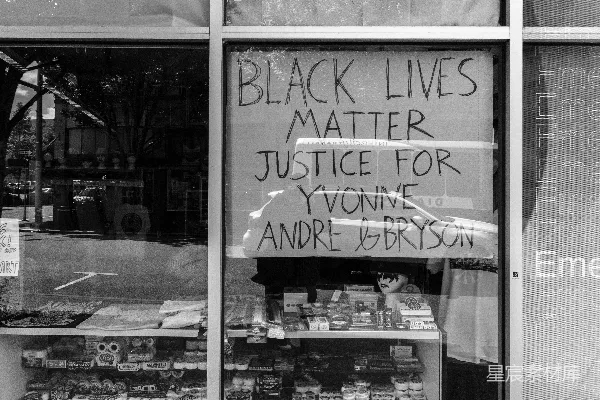 BLACK LIVES
MATTER
JUSTICE FOR
YVONNE
ANDRE & BRYSON
Eme
星宸素材库